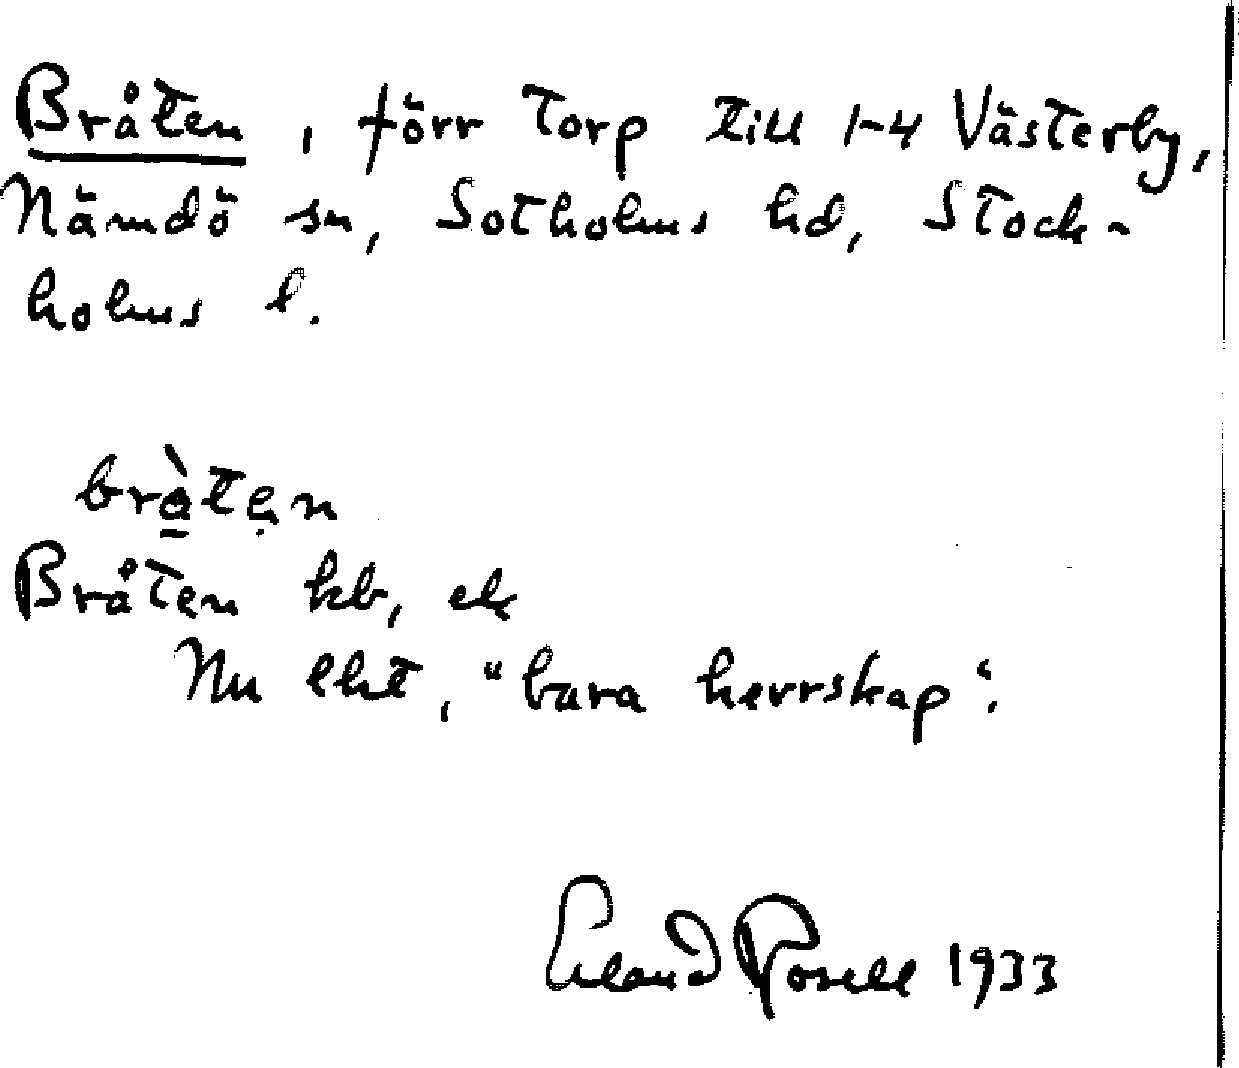 Bråten, förr Torp till 1-4 Västerby,
Nämdö sn, Sotholms hd, Stock-
holms l.
brà̱tẹn
Bråten kb, ek
Nu lht, "bara herrskap".
Erland Rosell 1933